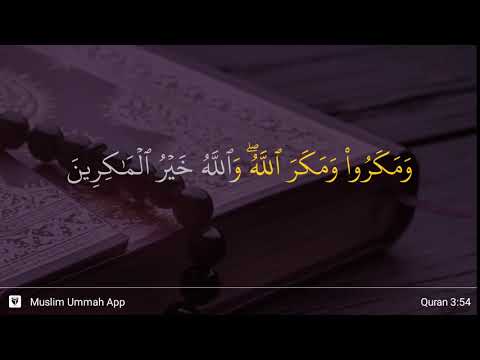 وَمَكَرُوا۟ وَمَكَرَ ٱللَّهُ ۖ وَٱللَّهُ خَيْرُ ٱلْمَـٰكِرِينَ
Muslim Ummah App
Quran 3:54